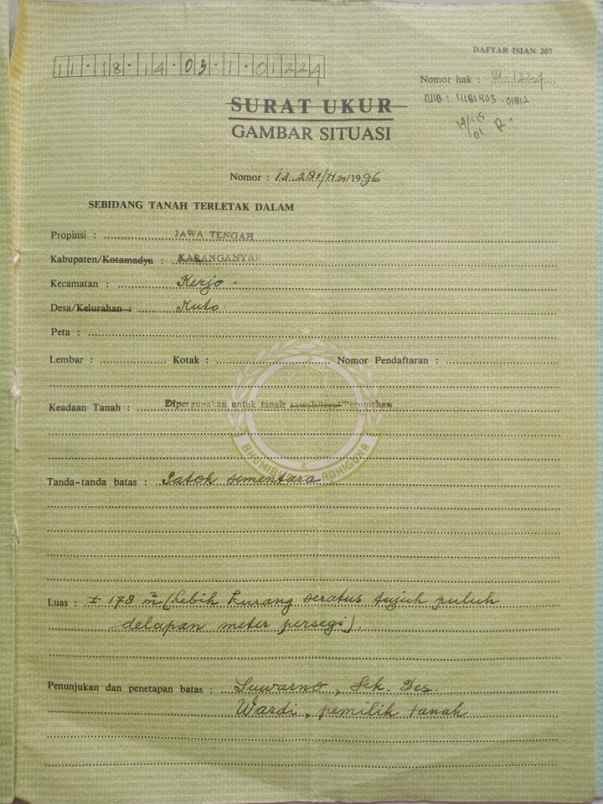 DAFTAR ISIAN 207
11.18.14.09.1.01224
Nomor hak :
SURAT UKUR
GAMBAR SITUASI
Nomor : /1996
SEBIDANG TANAH TERLETAK DALAM
Propinsi : JAWA TENGAH
Kabupaten/Kotamadya : KARANGANYAR
Kecamatan : Kerjo
Desa/Kelurahan : Kuto
Peta :
Lembar : Kotak : Nomor Pendaftaran :
Keadaan Tanah : Dipergunakan untuk tanah
Tanda-tanda batas : Patok sementara
Luas : ± 178 m² (Lebih kurang seratus tujuh puluh
delapan meter persegi).
Penunjukan dan penetapan batas : Suwarno, Sek. Des.
Wardi, pemilik tanah